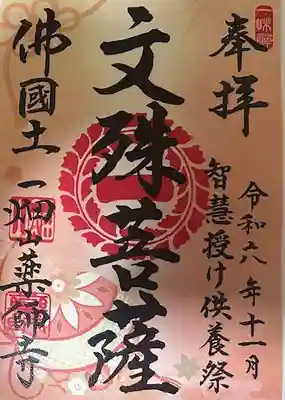 奉拝
令和六年十一月
智慧授け供養祭
文殊菩薩
佛國土一畑山薬師寺